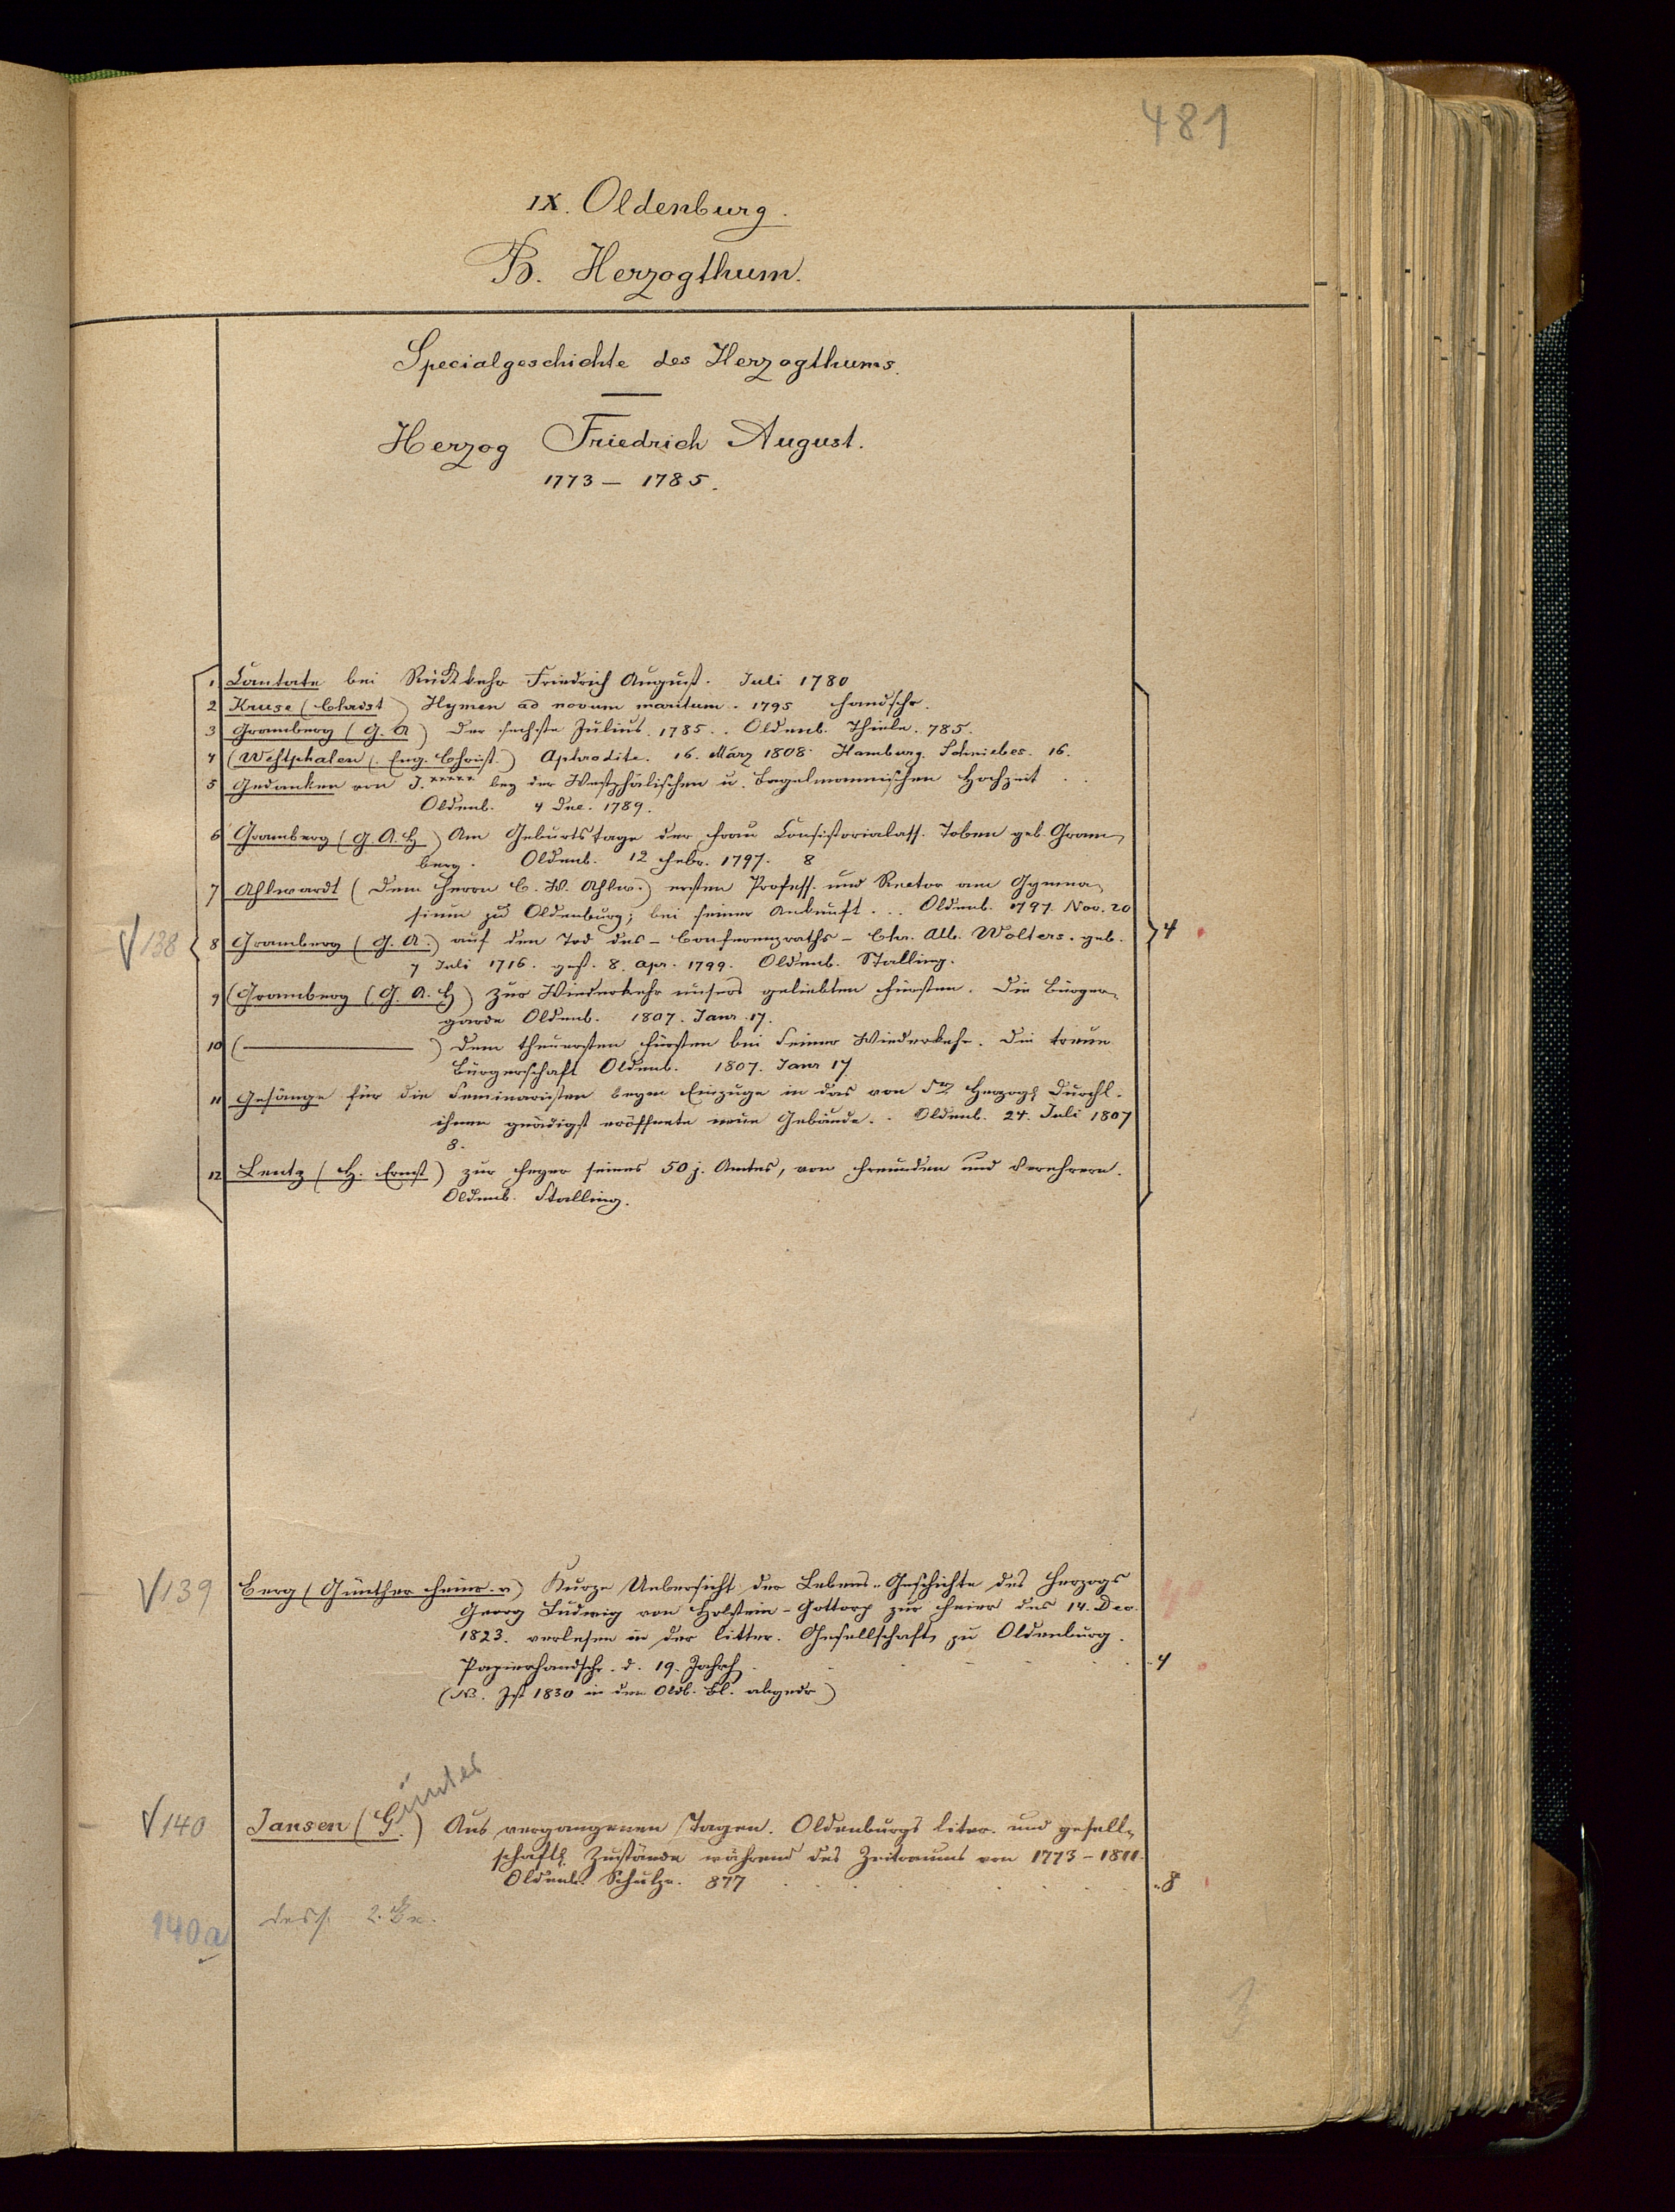 481
IX. Oldenburg.
B. Herzogthum.
Specialgeschichte des Herzogthums.
Herzog Friedrich August.
1773 – 1785.
1. Cantate bei Rückkehr Friedrich August. Juli 1780
2 Kruse (Christ) Hymen ad novum maritum. 1795 Handschr.
3 Gramberg (G. A) Der sechste Julius. 1785. . Oldenb. Thiele. 785.
4 (Westphalen (. Eng. Christ.) Aphrodite. 16. März 1808. Hamburg. Schniebes. 16.
5 Gedanken von J. ***** bey der Westphälischen u. Engelmannischen Hochzeit . .
Oldenb. 4 Dec. 1789.
6 Gramberg (G. A. H) Am Geburtstage der Frau Consistorialass. Toben geb. Gram-
berg. Oldenb. 12 Febr. 1797. 8
7 Ahlwardt (Dem Herrn C. W. Ahlw.) ersten Profess. und Rector am Gymna-
sium zu Oldenburg; bei seiner Ankunft. . . Oldenb. 1797. Nov. 20
138 8 Gramberg (G. A.) auf den Tod des – Conferenzraths – Chr. Alb. Wolters. geb. 4
7 Juli 1716. gest. 8. Apr. 1799. Oldenb. Stalling.
9 (Gramberg (G. A. H) zur Wiederkehr unsers geliebten Fürsten. Die Bürger-
garde Oldenb. 1807. Janr. 17.
10 (———) Dem theuersten Fürsten bei Seiner Wiederkehr. Die treue
Bürgerschaft Oldenb. 1807. Janr 17
11 Gesänge für die Seminaristen beym Einzuge in das von Sr. Herzogl. Durchl.
ihnen gnädigst eröffnete neue Gebäude. . Oldenb. 24. Juli 1807
8.
12 Lentz (H. Ernst) zur Feyer seines 50 j. Amtes, von Freunden und Verehrern.
Oldenb. Stalling.
139 Berg (Günther Heinr. v) Kurze Uebersicht der Lebens-Geschichte des Herzogs
Georg Ludwig von Holstein-Gottorp zur Feier des 14. Dec.
1823. verlesen in der litter. Gesellschaft zu Oldenburg.
Papierhandschr. d. 19. Jahrh. 4
(NB. Ist 1830 in den Oldb. Bl. abgedr)
140 Jansen (Günter) Aus vergangenen Tagen. Oldenburgs liter. und gesell-
schaftl. Zustände während des Zeitraums von 1773 – 1811.
Oldenb. Schulze. 877 8
140a dass. 2. Ex.